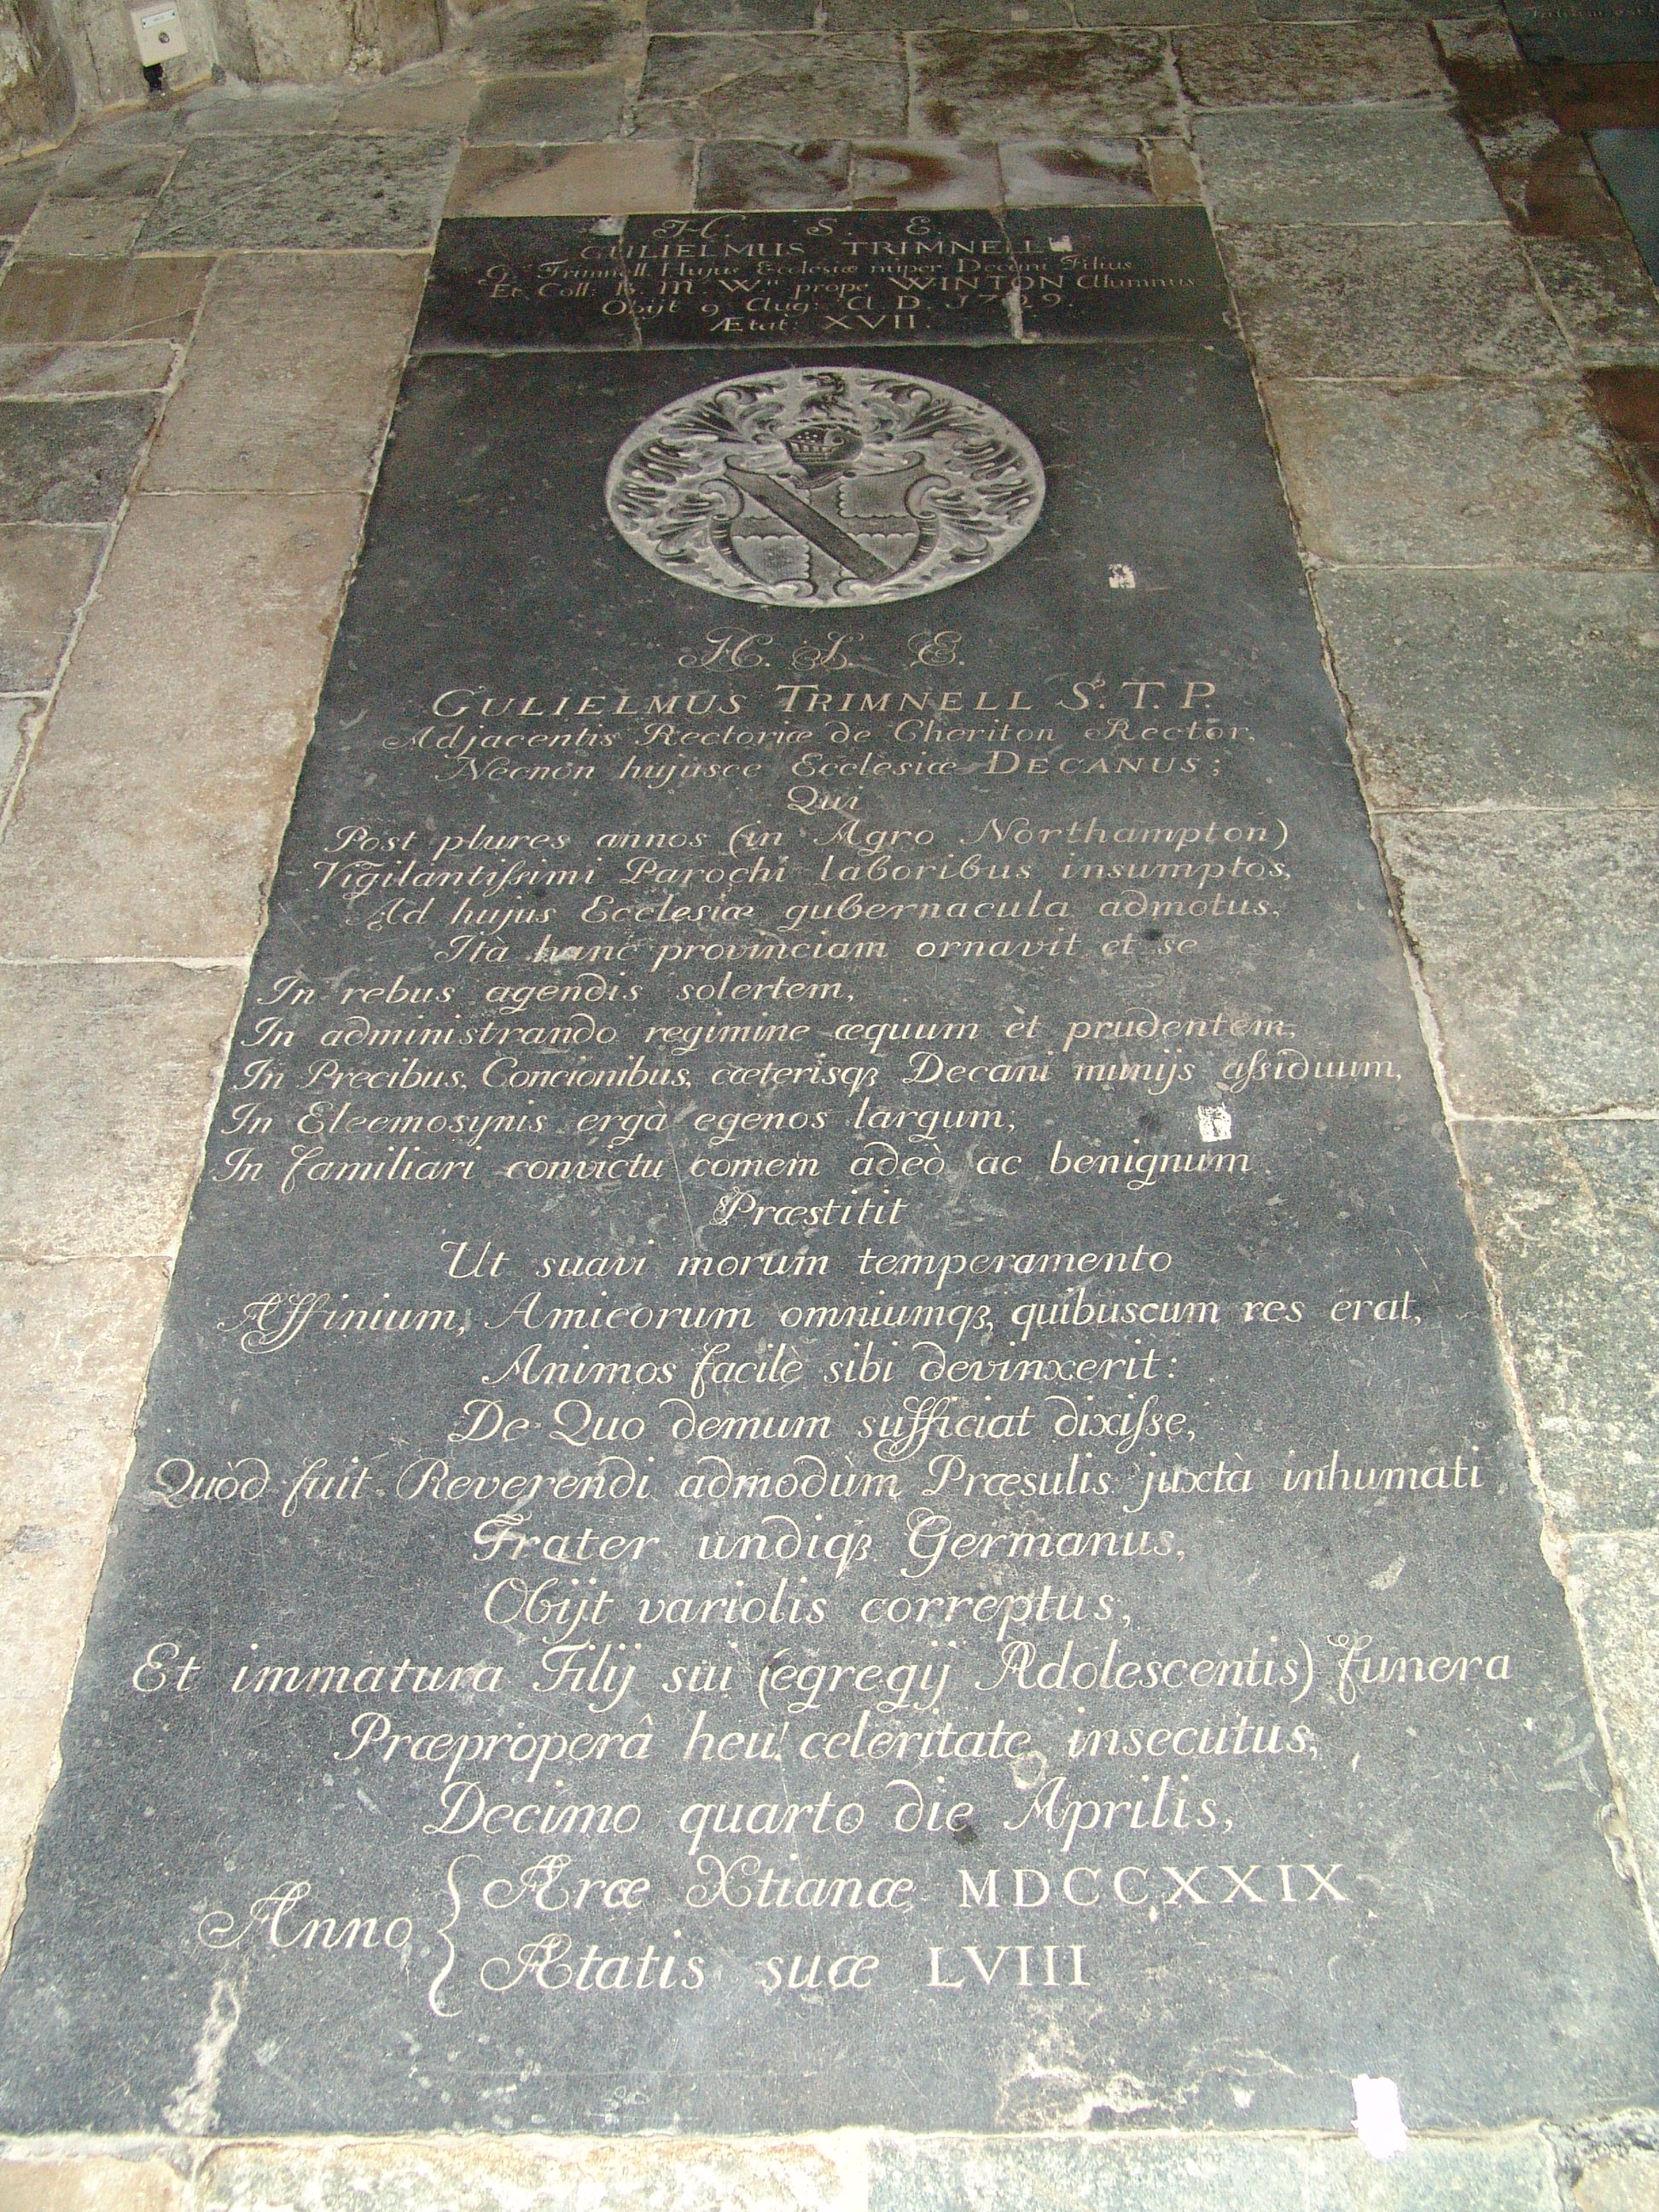 H. S. E.
GULIELMUS TRIMNELL
G. Trimnell Hujus Ecclesiæ nuper Decani Filius
Et Coll: B. M. Wⁿ prope WINTON Alumnus
Obijt 9 Aug: A. D. 1729.
Ætat: XVII.
H. S. E.
GULIELMUS TRIMNELL S.T.P.
Adjacentis Rectoriæ de Cheriton Rector,
Necnòn hujusce Ecclèsiæ DECANUS;
Qui
Post plures annos (in Agro Northampton)
Vigilantiſsimi Parochi laboribus insumptos,
Ad hujus Ecclesiæ gubernacula admotus,
Ità hanc provinciam ornavit et se
In rebus agendis solertem,
In administrando regimine æquum et prudentem,
In Precibus, Concionibus, cæterisqꝫ Decani munijs aſsiduum,
In Eleemosynis ergà egenos largum;
In familiari convictu comem adeò ac benignum
Præstitit
Ut suavi morum temperamento
Affinium, Amicorum omniumqꝫ, quibuscum res erat,
Animos facilè sibi devinxerit:
De Quo demum sufficiat dixiſse,
Quòd fuit Reverendi admodùm Præsulis juxtà inhumati
Frater undiqꝫ Germanus,
Obijt variolis correptus,
Et immatura Filij sui (egregij Adolescentis) funera
Præproperâ heu! celeritate insecutus,
Decimo quarto die Aprilis,
Anno { Æræ Xtianæ MDCCXXIX
Ætatis suæ LVIII